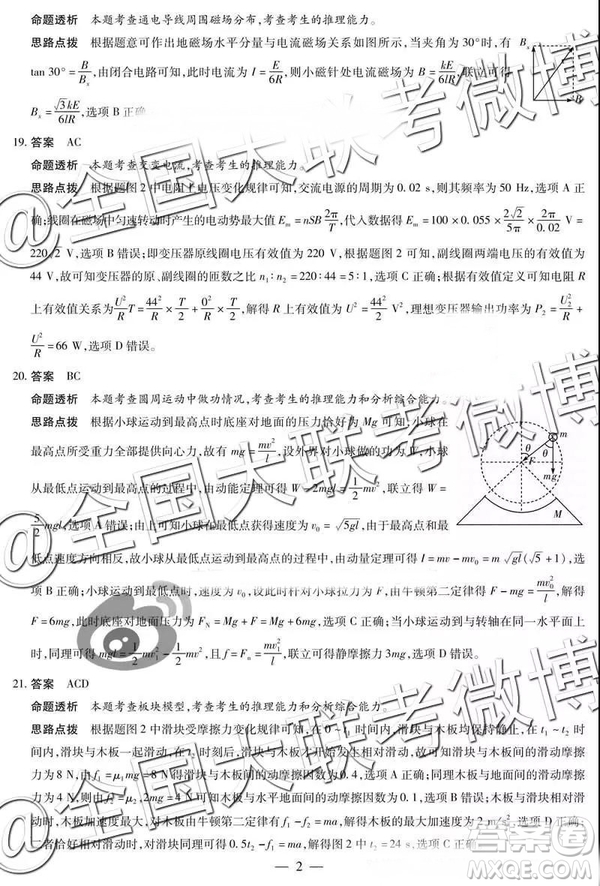 命题透析 本题考查通电导线周围磁场分布,考查考生的推理能力。
思路点拨 根据题意可作出地磁场水平分量与电流磁场关系如图所示,当夹角为30°时,有
tan 30° = B/Bₓ,由闭合电路可知,此时电流为 I = E/6R,则小磁针处电流磁场为 B = kE/6lR,联立可得
Bₓ = √3kE/6lR,选项 B 正确
19. 答案 AC
命题透析 本题考查交变电流,考查考生的推理能力。
思路点拨 根据题图2中电阻上电压变化规律可知,交流电源的周期为0.02 s,则其频率为50 Hz,选项 A 正
确;线圈在磁场中匀速转动时产生的电动势最大值 Eₘ = nSB 2π/T,代入数据得 Eₘ = 100 × 0.055 × 2√2/5π × 2π/0.02 V =
220√2 V,选项 B 错误;即变压器原线圈电压有效值为 220 V,根据题图 2 可知,副线圈两端电压的有效值为
44 V,故可知变压器的原、副线圈的匝数之比 n₁ : n₂ = 220 : 44 = 5 : 1,选项 C 正确;根据有效值定义可知电阻 R
上有效值关系为 U²/R T = 44²/R × T/2 + 0²/R × T/2,解得 R 上有效值 U² = 44²/2 V²,理想变压器输出功率为 P₂ = U₂²/R +
U²/R = 66 W,选项 D 错误。
20. 答案 BC
命题透析 本题考查圆周运动中做功情况,考查考生的推理能力和分析综合能力。
思路点拨 根据小球运动到最高点时底座对地面的压力恰好为 Mg 可知,小球在
最高点所受重力全部提供向心力,故有 mg = mv²/l,设外界对小球做的功为 W,小球
从最低点运动到最高点的过程中,由动能定理可得 W - 2mgl = 1/2 mv²,联立得 W =
5/2 mgl,选项 A 错误;由上可知小球最低点获得速度为 v₀ = √5gl,由于最高点和最
低点速度方向相反,故小球从最低点运动到最高点的过程中,由动量定理可得 I = mv - mv₀ = m√gl(√5 + 1),选
项 B 正确;小球运动到最低点时,速度为 v₀,设此时杆对小球拉力为 F,由牛顿第二定律得 F - mg = mv₀²/l,解得
F = 6mg,此时底座对地面压力为 F_N = Mg + F = Mg + 6mg,选项 C 正确。当小球运动到与转轴在同一水平面上
时,同理可得 mgl = 1/2 mv₀² - 1/2 mv₁²,且 f = Fₙ = mv₁²/l,联立可得静摩擦力 3mg,选项 D 错误。
21. 答案 ACD
命题透析 本题考查板块模型,考查考生的推理能力和分析综合能力。
思路点拨 根据题图 2 中滑块受摩擦力变化规律可知,在 0~t₁ 时间内,滑块与木板均保持静止,在 t₁~t₂ 时
间内,滑块与木板一起滑动,在 t₂ 时刻后,滑块与木板才开始发生相对滑动,故可知滑块与木板间的滑动摩擦
力为 8 N,由 f₁ = μ₁mg = 8 N 得滑块与木板间的滑动摩擦因数为 0.4,选项 A 正确;同理木板与地面间的滑动摩擦
力为 4 N,则由 f₂ = μ₂2mg 可知木板与水平地面间的动摩擦因数为 0.1,选项 B 错误;木板与滑块相对滑
动时,木板加速度最大,对木板由牛顿第二定律有 f₁ - f₂ = ma,解得木板的最大加速度为 2 m/s²,选项 C 正确;
二者恰好相对滑动时,同理可得 0.5t₂ - f₂ = 2ma,解得图 2 中 t₂ = 24 s,选项 D 正确。
— 2 —
Bₓ
B
θ
m
F
θ
mg
M
@全国大联考微博
@全国大联考微博
@全国大联考微博
答案圈
MXQE.COM